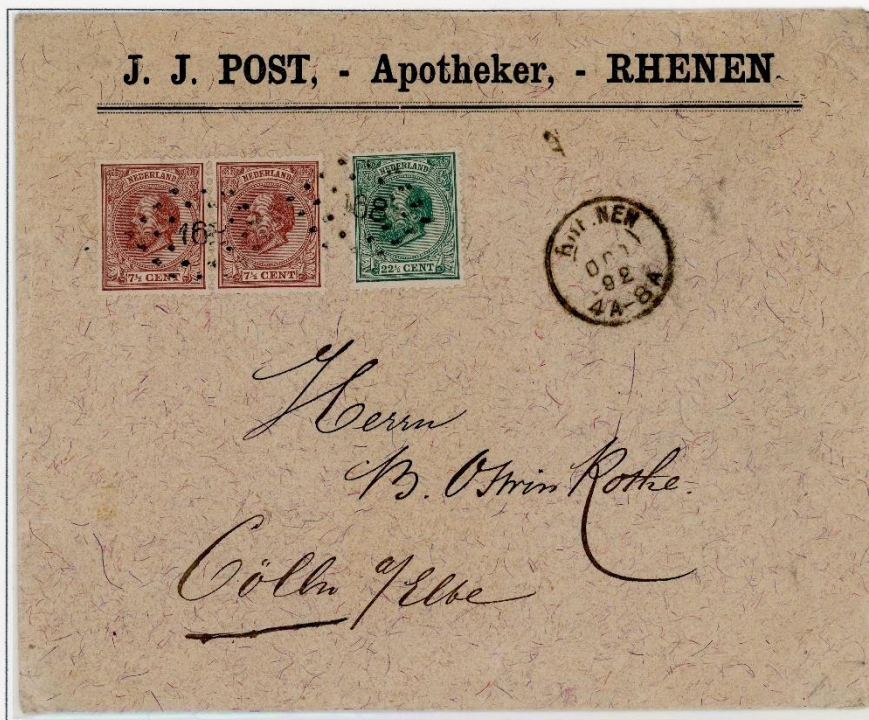 J. J. POST, - Apotheker, - RHENEN
NEDERLAND
7½ CENT
NEDERLAND
7½ CENT
168
NEDERLAND
22½ CENT
168
NEN
OCT
92
4A-8A
Herrn
B. Oswin Rothe.
Cölln a/Elbe